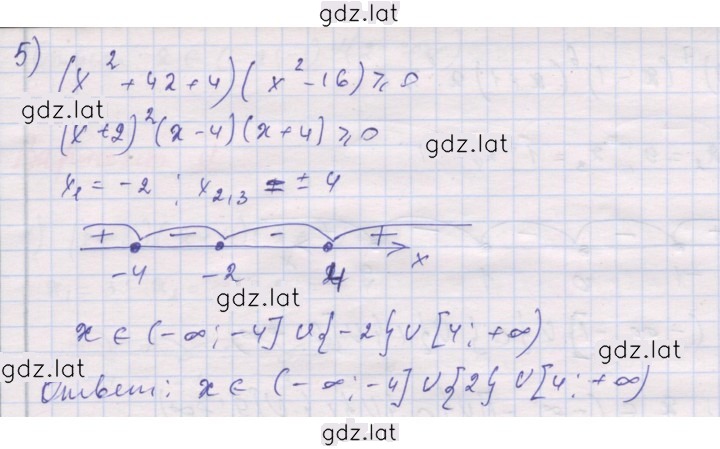 gdz.lat
5) (x² + 4x + 4)(x² - 16) ≥ 0
gdz.lat
(x + 2)²(x - 4)(x + 4) ≥ 0
gdz.lat
x₁ = -2 ; x₂,₃ = ± 4
+ - - +
-4 -2 4 x
gdz.lat
x ∈ (-∞; -4] ∪ {-2} ∪ [4; +∞)
gdz.lat
gdz.lat
Ответ: x ∈ (-∞; -4] ∪ {2} ∪ [4; +∞)
gdz.lat